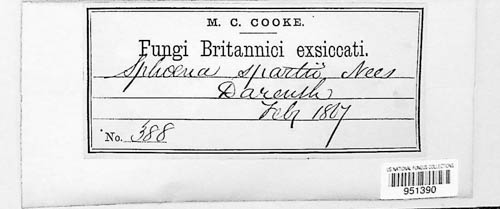 M. C. COOKE.
Fungi Britannici exsiccati.
Sphœria spartii Nees
Darenth
Feby 1867
No. 388
US NATIONAL FUNGUS COLLECTIONS
951390